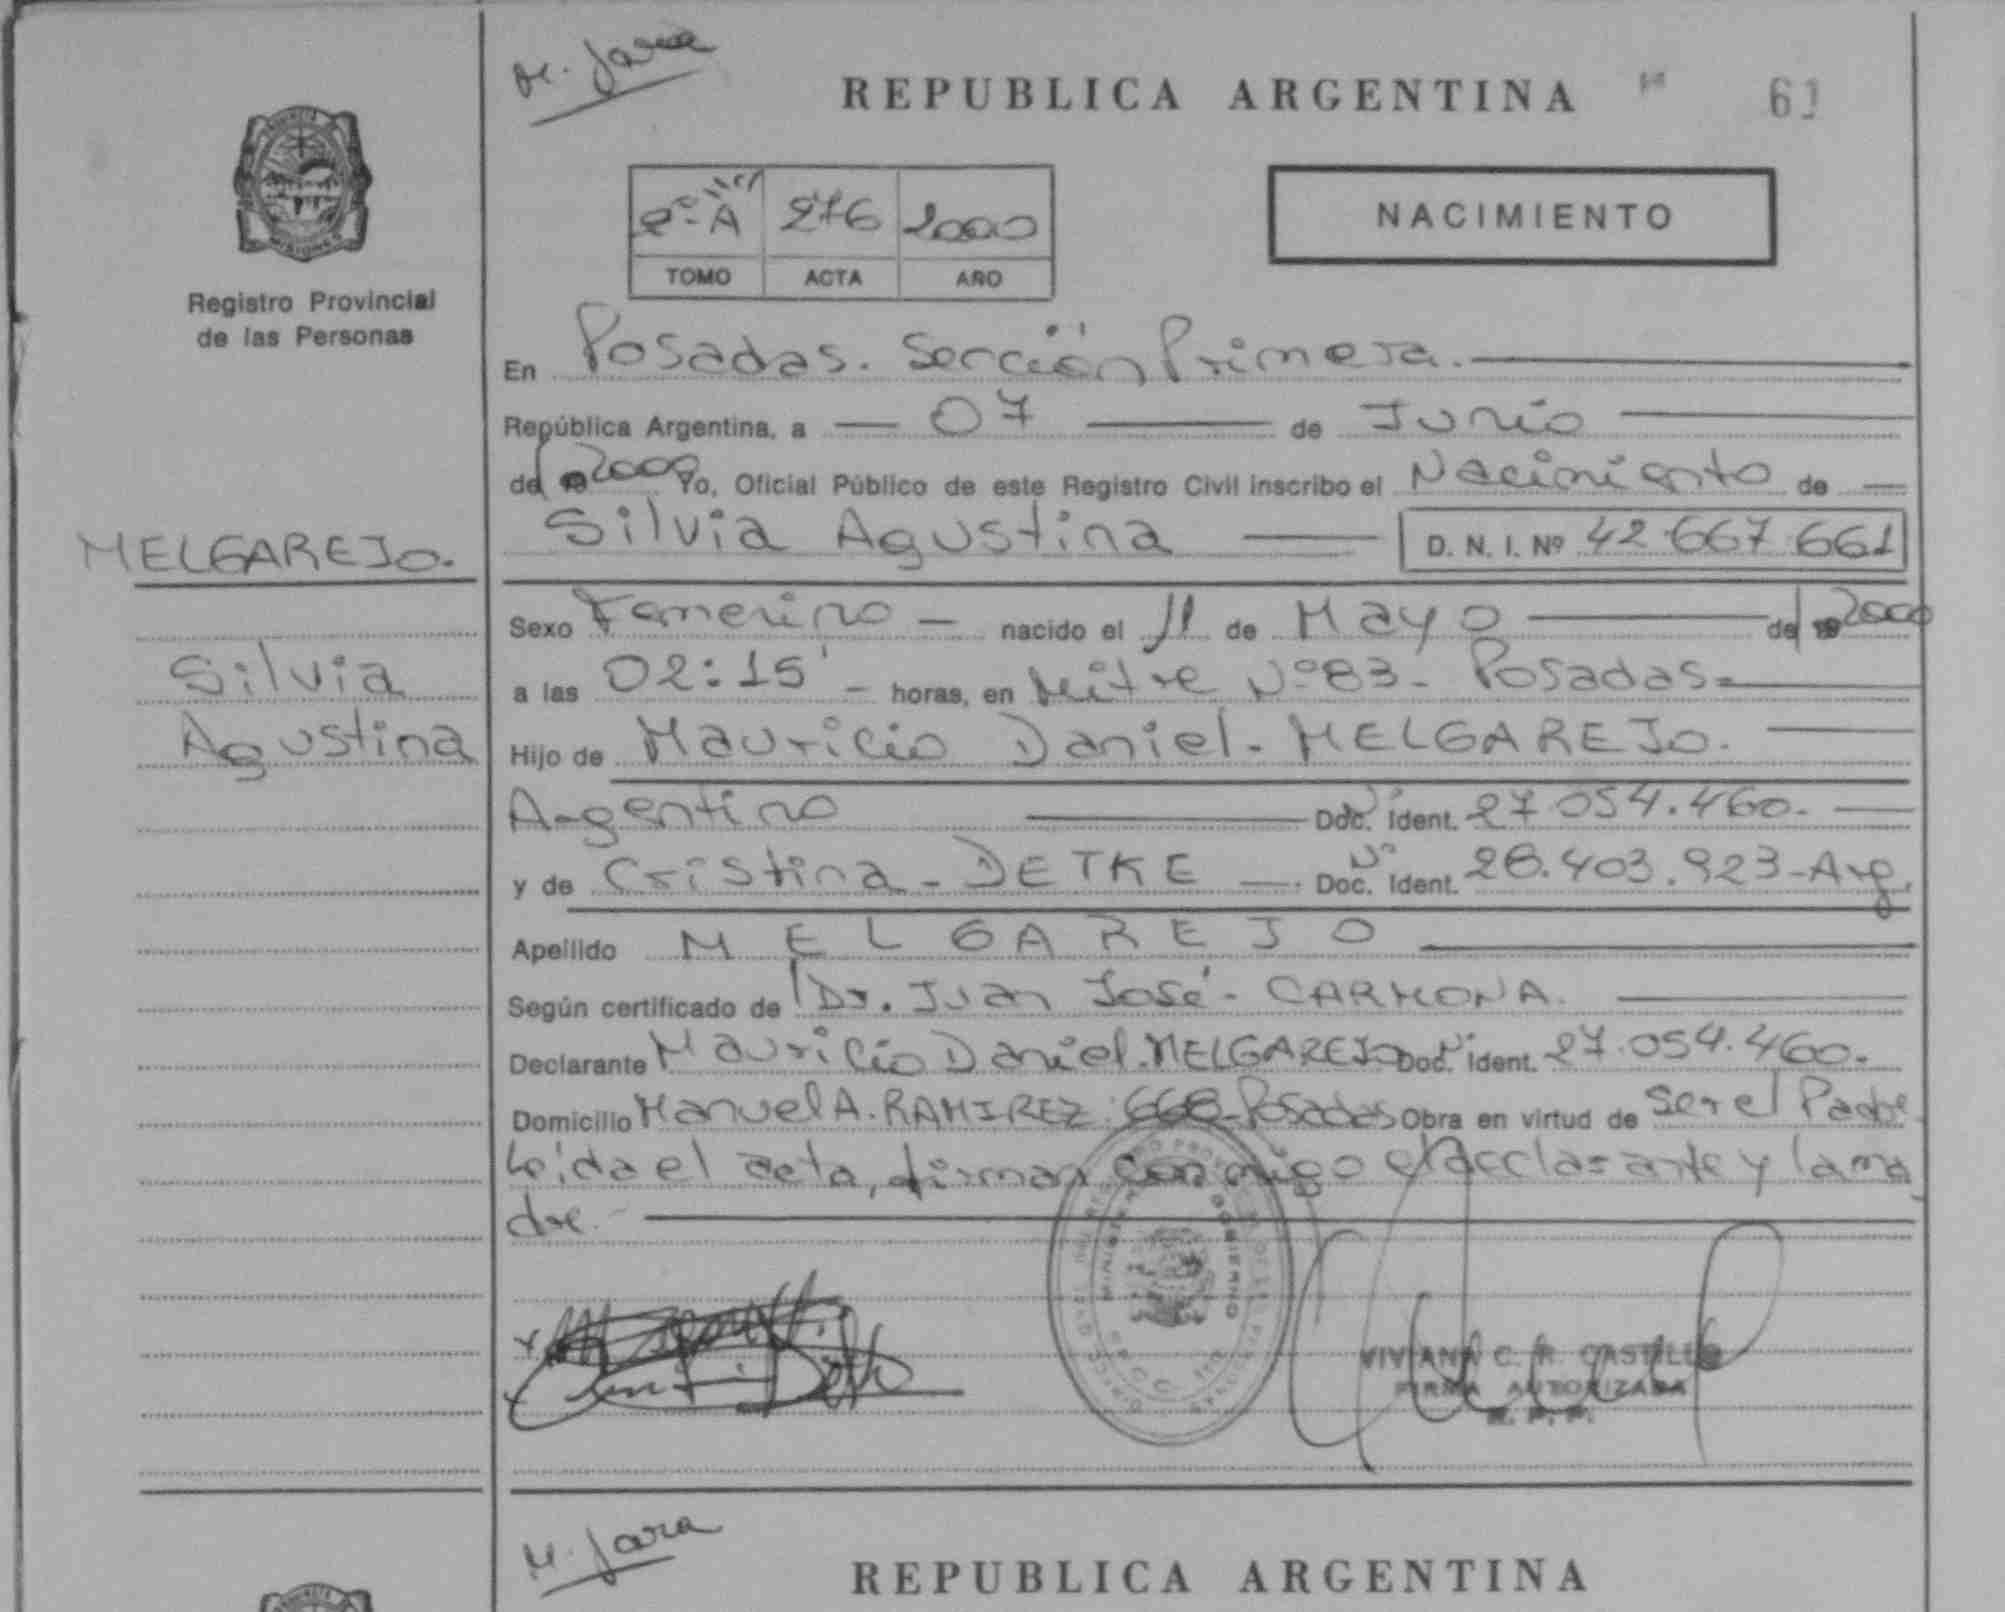 M. Jara
REPUBLICA ARGENTINA
61
2º "A" 276 2000
TOMO ACTA AÑO
NACIMIENTO
Registro Provincial
de las Personas
En Posadas. Sección Primera.
República Argentina, a 07 de Junio
de 2000 Yo, Oficial Público de este Registro Civil inscribo el Nacimiento de
Silvia Agustina D. N. I. Nº 42.667.661
MELGAREJO.
Silvia
Agustina
Sexo Femenino - nacido el 11 de Mayo de 2000
a las 02:15' - horas, en Mitre Nº 83 - Posadas
Hijo de Mauricio Daniel - MELGAREJO.
Argentino Doc. Nº Ident. 27.054.460.
y de Cristina - DETKE Doc. Nº Ident. 28.403.923 - Arg.
Apellido MELGAREJO
Según certificado de Dr. Juan José - CARMONA.
Declarante Mauricio Daniel. MELGAREJO Doc. Nº Ident. 27.054.460.
Domicilio Manuel A. RAMIREZ 668 - Posadas Obra en virtud de ser el Padre
Leída el acta, firman conmigo el declarante y la ma
dre.
VIVIANA C. R. CASTILLO
FIRMA AUTORIZADA
R. P. P.
M. Jara
REPUBLICA ARGENTINA